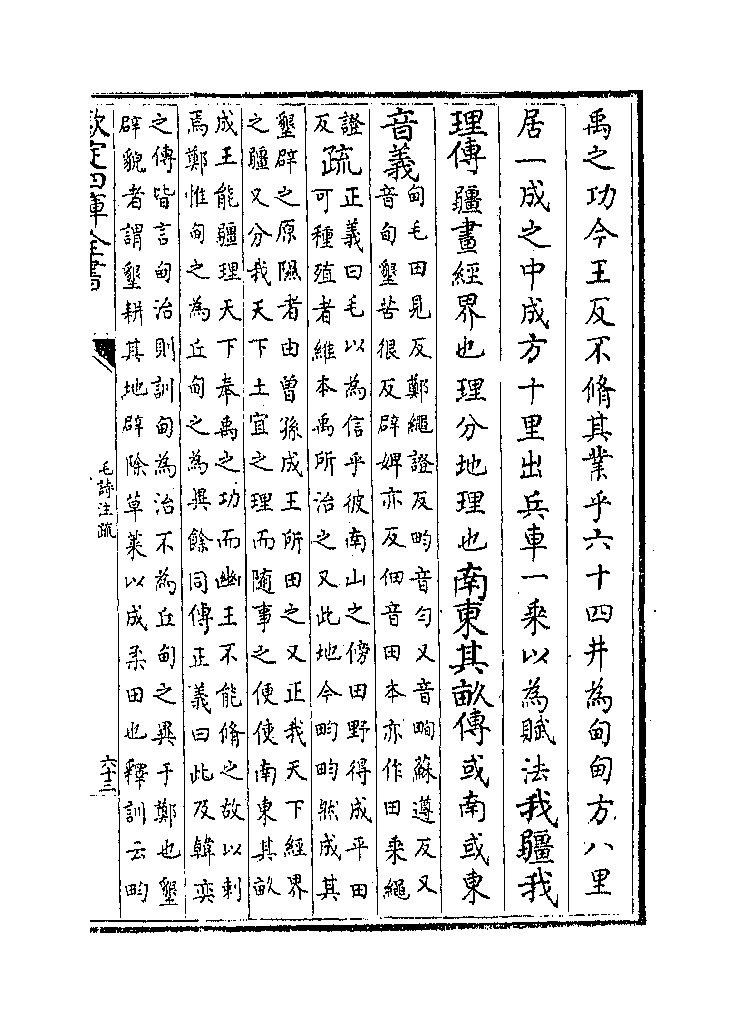 禹之功今王反不脩其業乎六十四井為甸甸方八里
居一成之中成方十里出兵車一乘以為賦法我疆我
理傳疆畫經界也理分地理也南東其畝傳或南或東
音義甸毛田見反鄭繩證反畇音勻又音畇蘇遵反又
音旬墾苦很反辟婢亦反佃音田本亦作田乘繩
證
反疏正義曰毛以為信乎彼南山之傍田野得成平田
可種殖者維本禹所治之又此地今畇畇然成其
墾辟之原隰者由曾孫成王所田之又正我天下經界
之疆又分我天下土宜之理而隨事之便使南東其畝
成王能疆理天下奉禹之功而幽王不能脩之故以刺
焉鄭惟甸之為丘甸之為異餘同傳正義曰此及韓奕
之傳皆言甸治則訓甸為治不為丘甸之異于鄭也墾
辟貌者謂墾耕其地辟除草萊以成柔田也釋訓云畇
欽定四庫全書
毛詩注疏
六十三